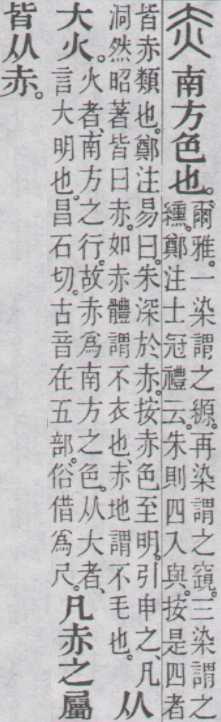 赤 南方色也。爾雅。一染謂之縓。再染謂之竀。三染謂之
纁。鄭注士冠禮云。朱則四入與。按是四者
皆赤類也。鄭注易曰。朱深於赤。按赤色至明。引申之、凡
洞然昭著皆曰赤。如赤體謂不衣也、赤地謂不毛也。从
大火。火者、南方之行。故赤爲南方之色。从大者、
言大明也。昌石切。古音在五部。俗借爲尺。凡赤之屬
皆从赤。